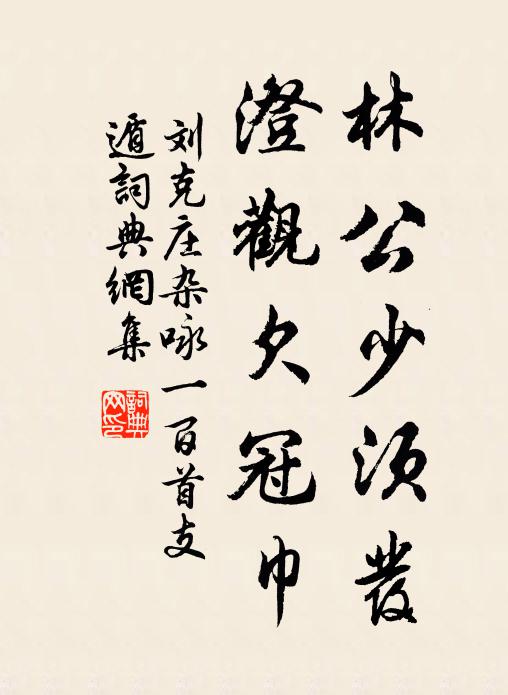 林公少須發
澄觀欠冠巾
刘克庄杂咏一百首支
遁詞典網集
詞典
网印